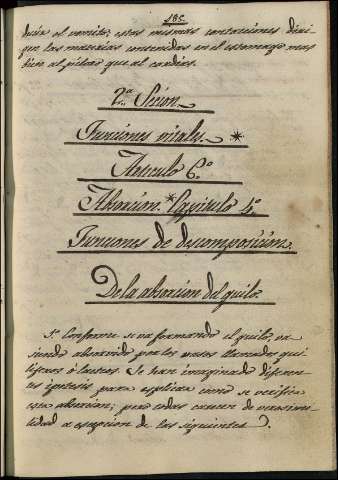 185.
ducir el vomito; estas mismas contracciones diri-
gen las materias contenidas en el estomago mas
bien al piloro que al cardias.
2.ª Secion.
Funciones vitales. *
Articulo 6.º
Absorcion. * Capitulo 4.º
Funciones de descomposicion.
De la absorcion del quilo.
Conforme se va formando el quilo, va
siendo absorvido por los vasos llamados qui-
liferos ó lacteos. Se han imaginado diferen-
tes ipotesis para esplicar como se verifica
esta absorcion; pero todas carecen de verosimi-
litud a escepcion de las siguientes.